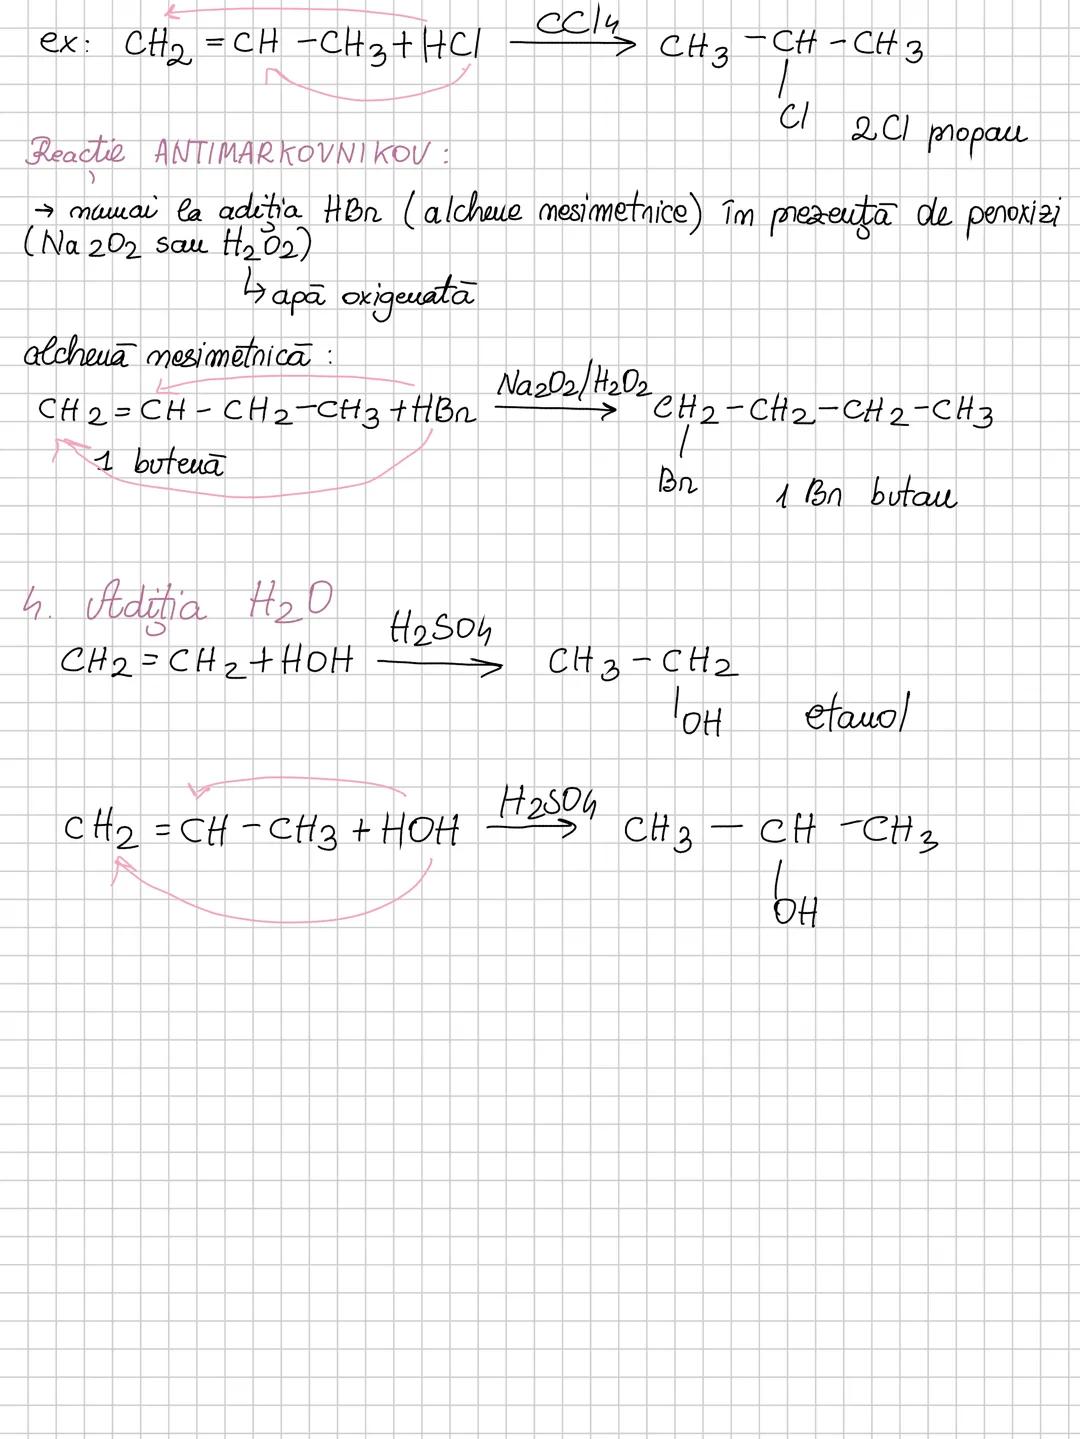 ex: CH2 = CH - CH3 + HCl CCl4 → CH3 - CH - CH3
Cl 2Cl propan
Reacție ANTIMARKOVNIKOV:
→ numai la adiția HBr (alchene nesimetrice) în prezență de peroxizi
(Na2O2 sau H2O2)
↳ apă oxigenată
alchenă nesimetrică:
CH2 = CH - CH2 - CH3 + HBr Na2O2/H2O2 → CH2 - CH2 - CH2 - CH3
1 butenă
Br 1 Br butan
4. Adiția H2O
CH2 = CH2 + HOH H2SO4 → CH3 - CH2
OH etanol
CH2 = CH - CH3 + HOH H2SO4 → CH3 - CH - CH3
OH